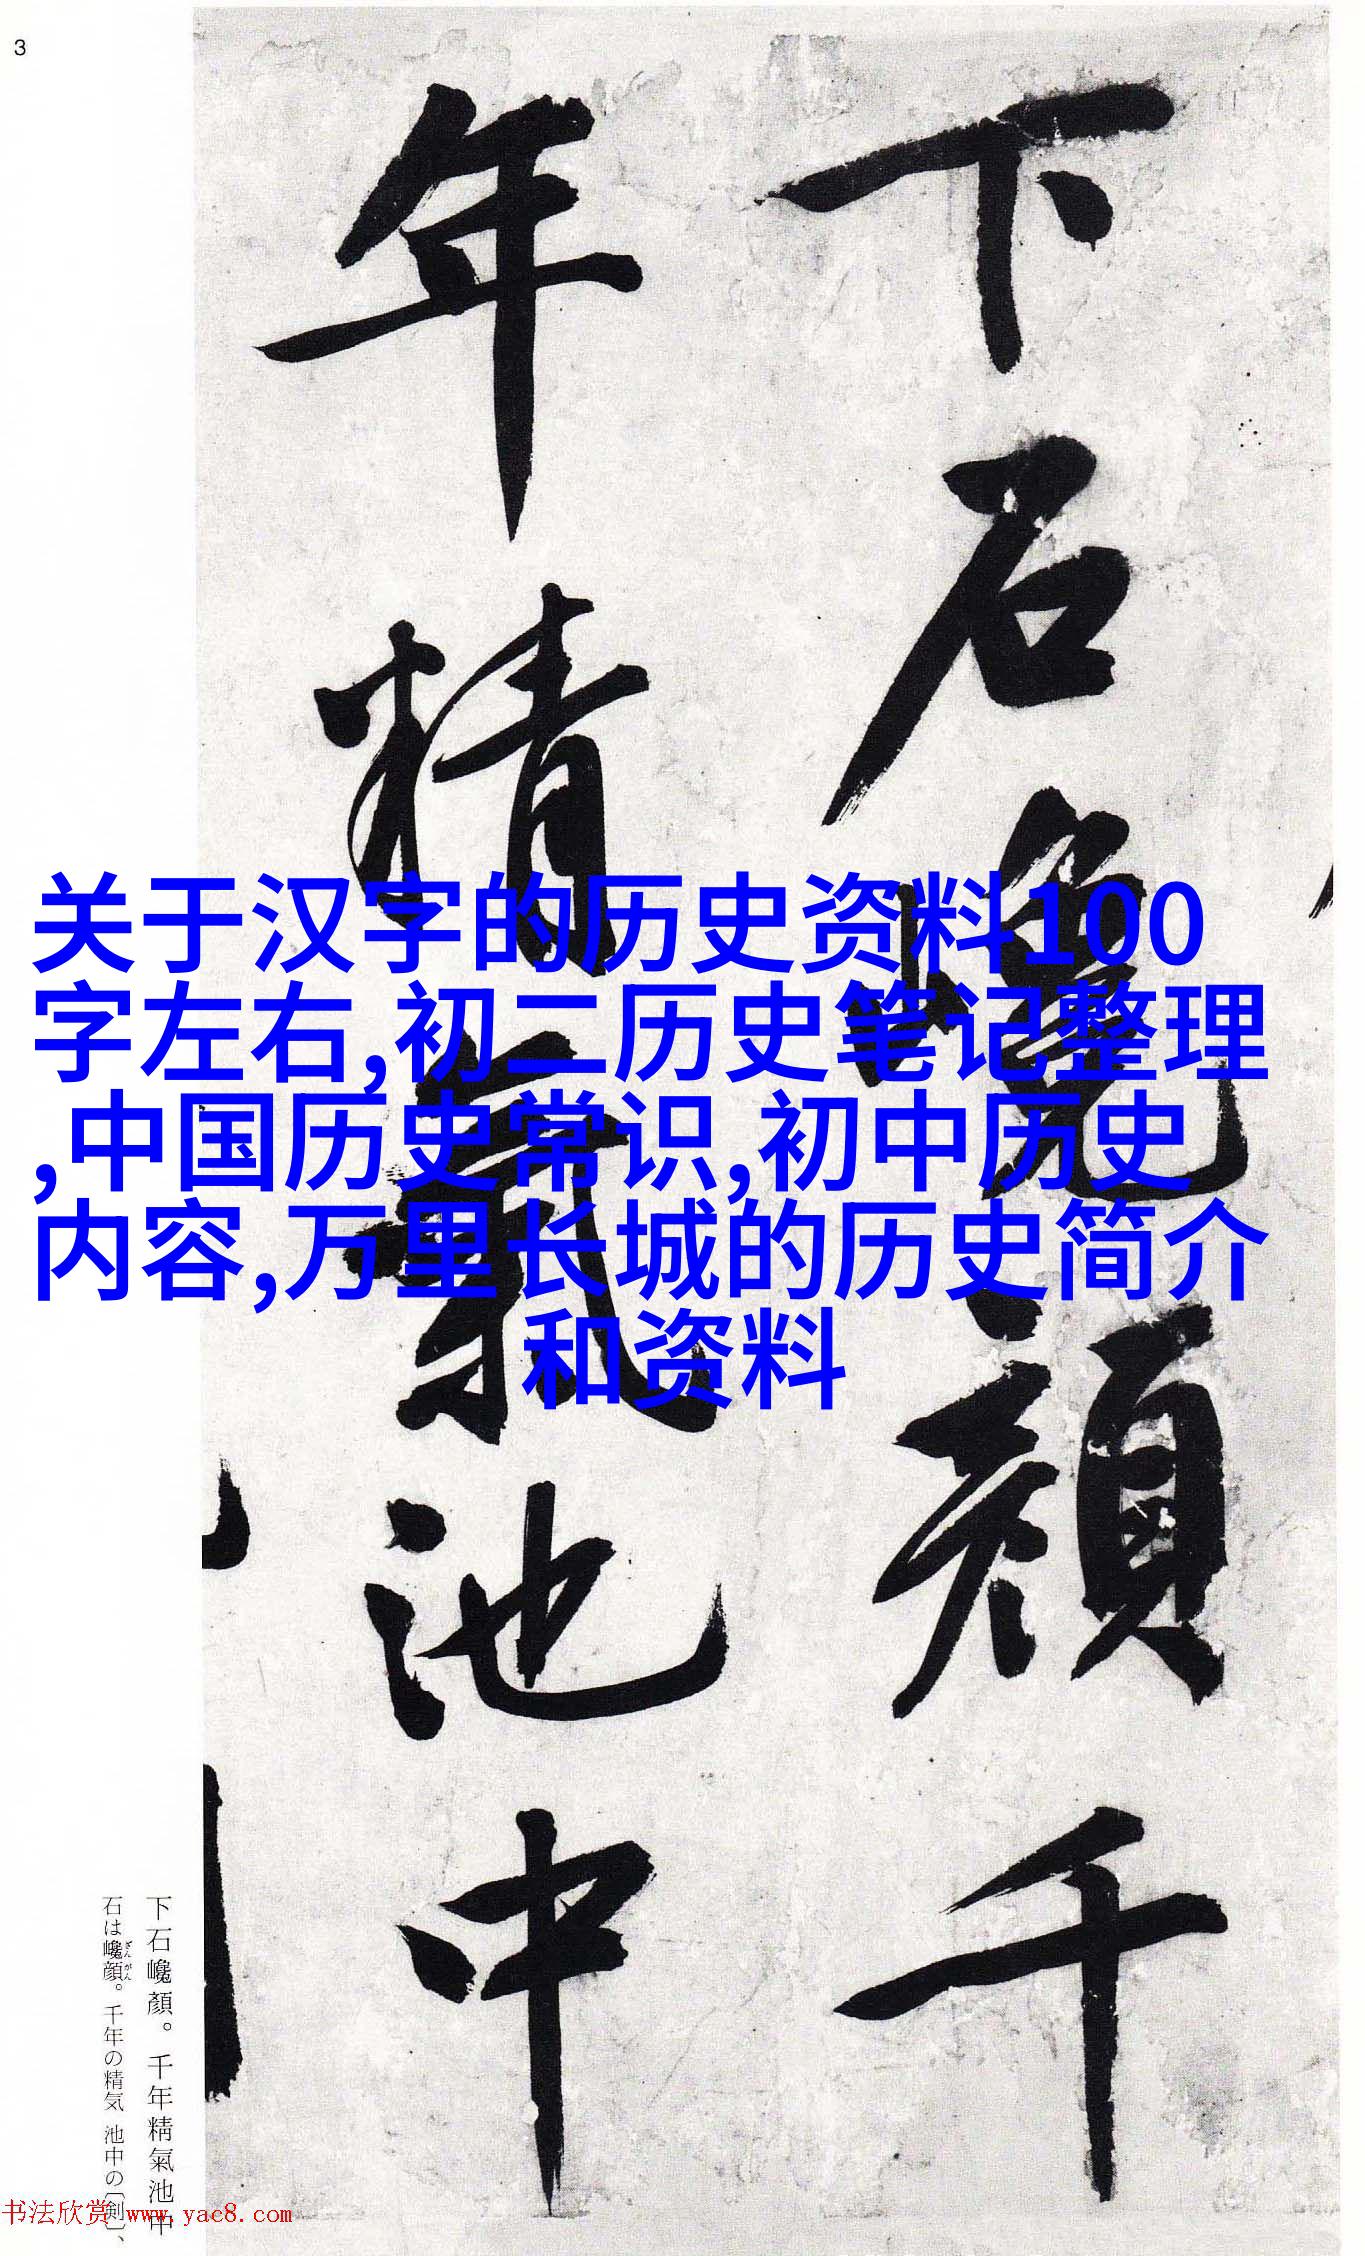 3
下石巉顔千
年精氣池中
关于汉字的历史资料100
字左右,初二历史笔记整理
,中国历史常识,初中历史
内容,万里长城的历史简介
和资料
下石巉顏。千年精氣池中
石は巉顔。千年の精気 池中の〔剣〕、
ざんがん
书法欣赏 www.yac8.com